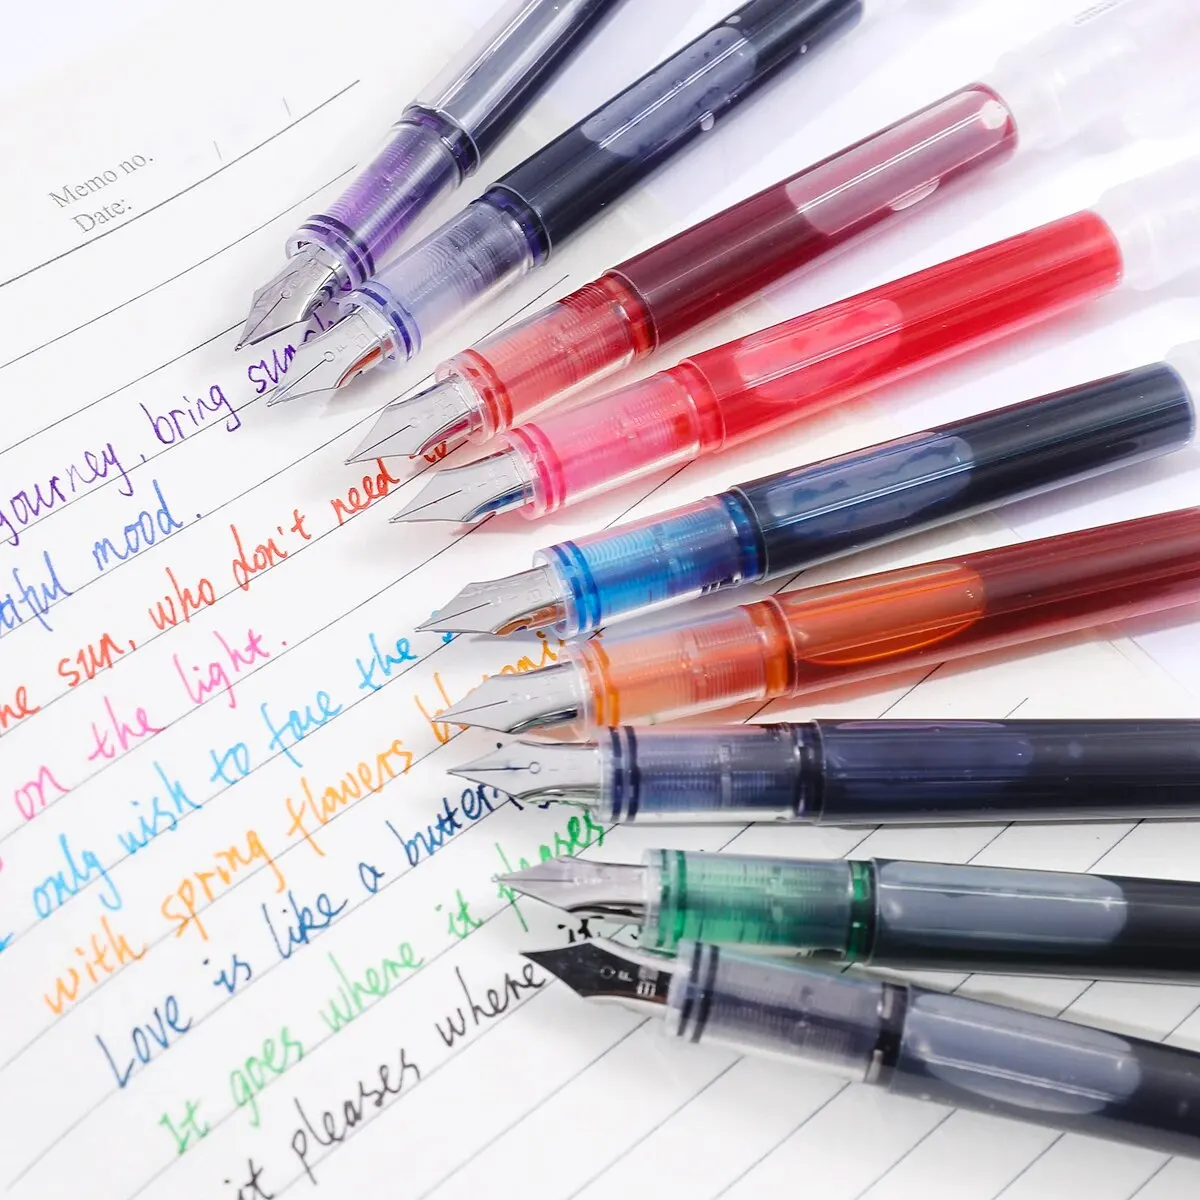 Memo no.
Date:
journey, bring
mood.
sun, who don't need
on the light.
only wish to face the
with spring flowers
Love is like a butter
It goes where it pleases
it pleases where it